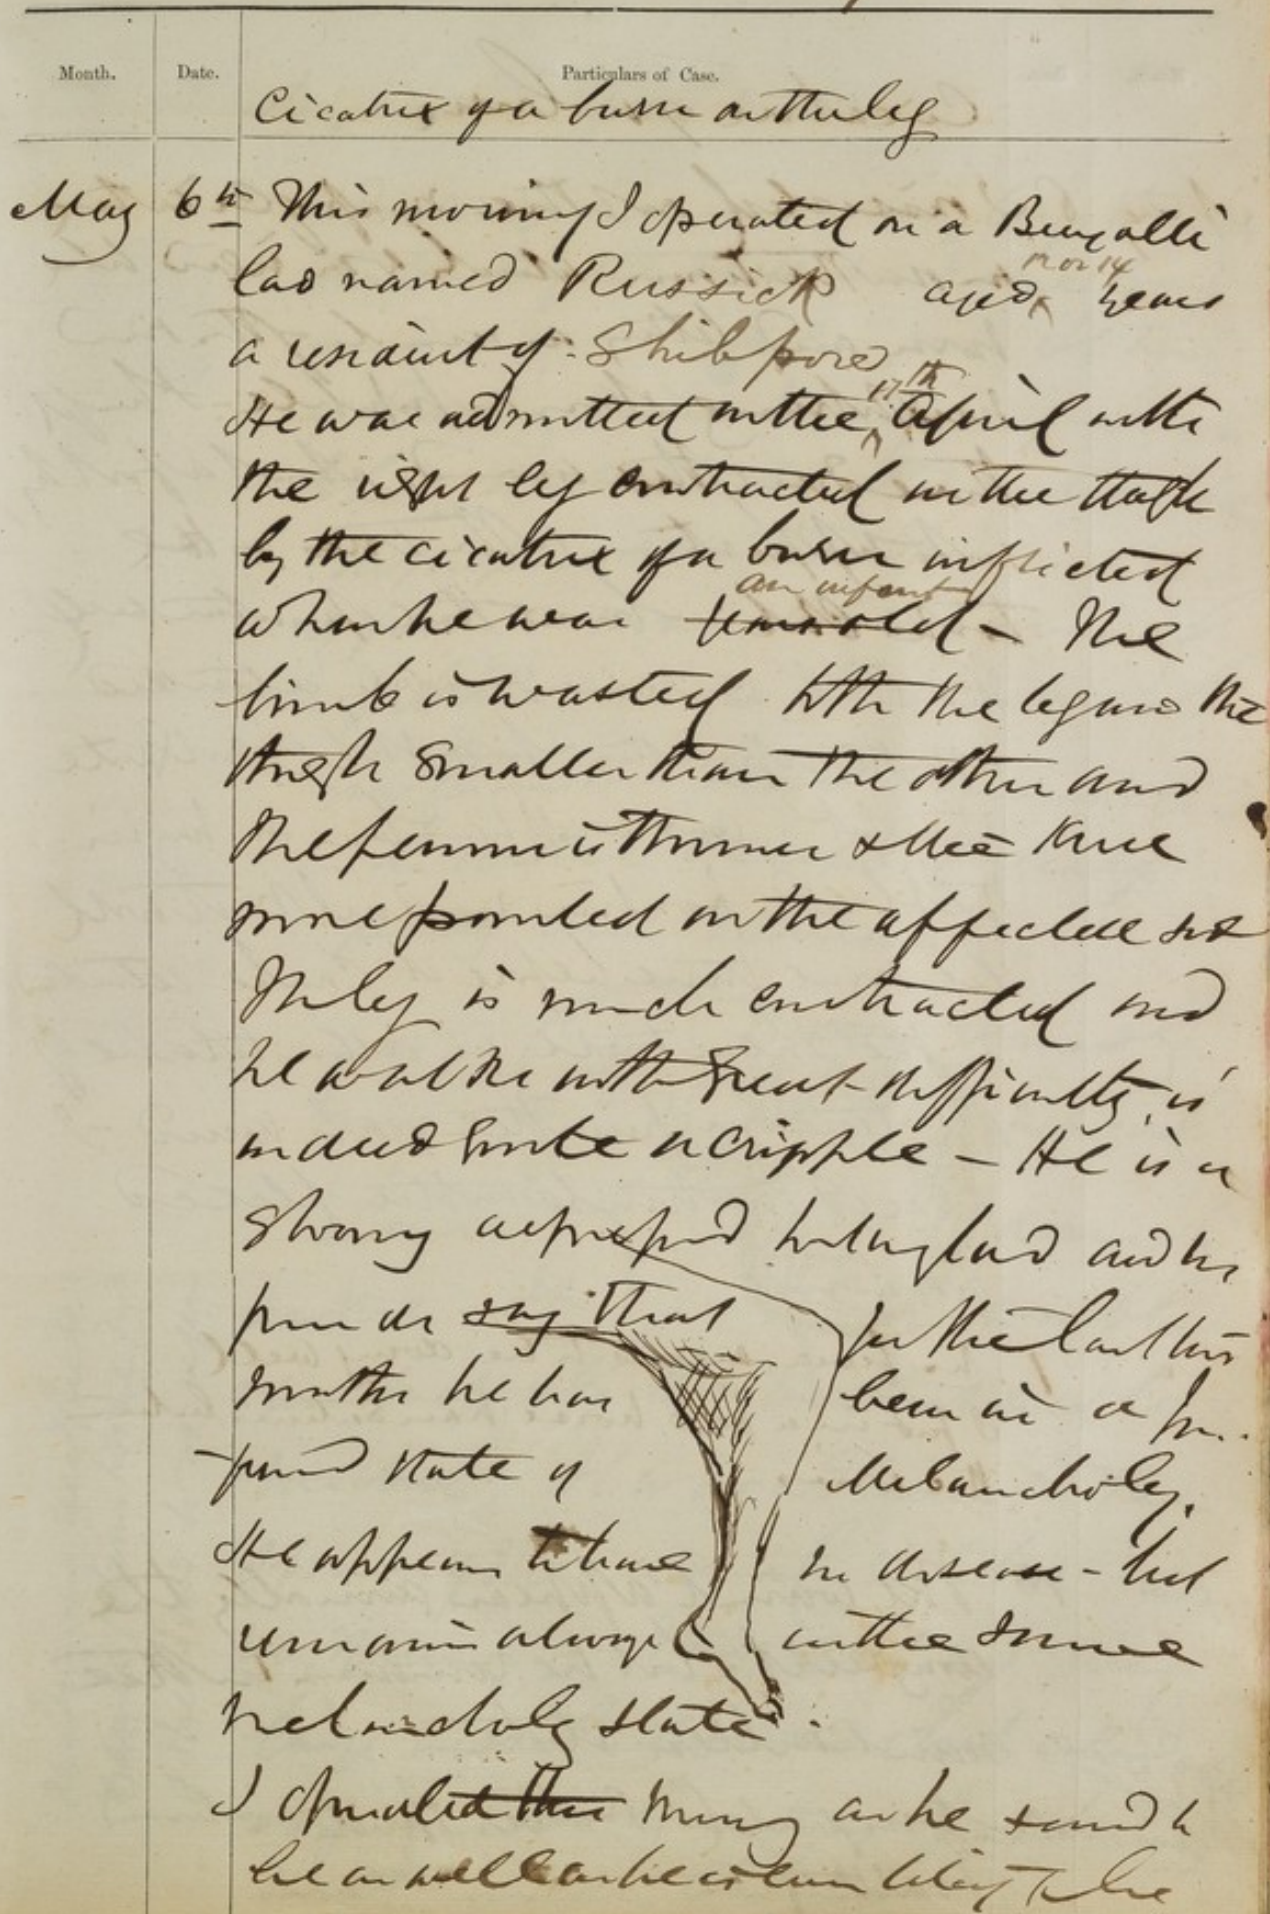 Month. Date. Particulars of Case.
Cicatrix of a burn on the leg
May 6th This morning I operated on a Bengalli
lad named Russick aged 12 or 14 years
a resident of Shibpore
He was admitted on the 17th April with
the right leg contracted on the thigh
by the cicatrix of a burn inflicted
when he was years old an infant - The
limb is wasted both the leg and the
thigh smaller than the other and
the femur is thinner & the knee
more pointed on the affected side
The leg is much contracted and
he walks with great difficulty, is
indeed quite a cripple - He is a
strong lad and his
friends say that for the last two
months he has been in a pro..
found state of Melancholy.
He appears to have no disease - but
remains always in the same
melancholy state.
I operated this morning as he seemed to
be as well as he is ever likely to be